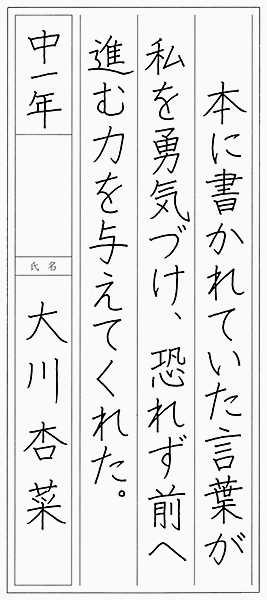 本に書かれていた言葉が
私を勇気づけ、恐れず前へ
進む力を与えてくれた。
中一年
氏名
大川杏菜